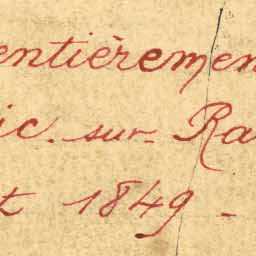 entièremen
ic. sur- Ra
t 1849 -